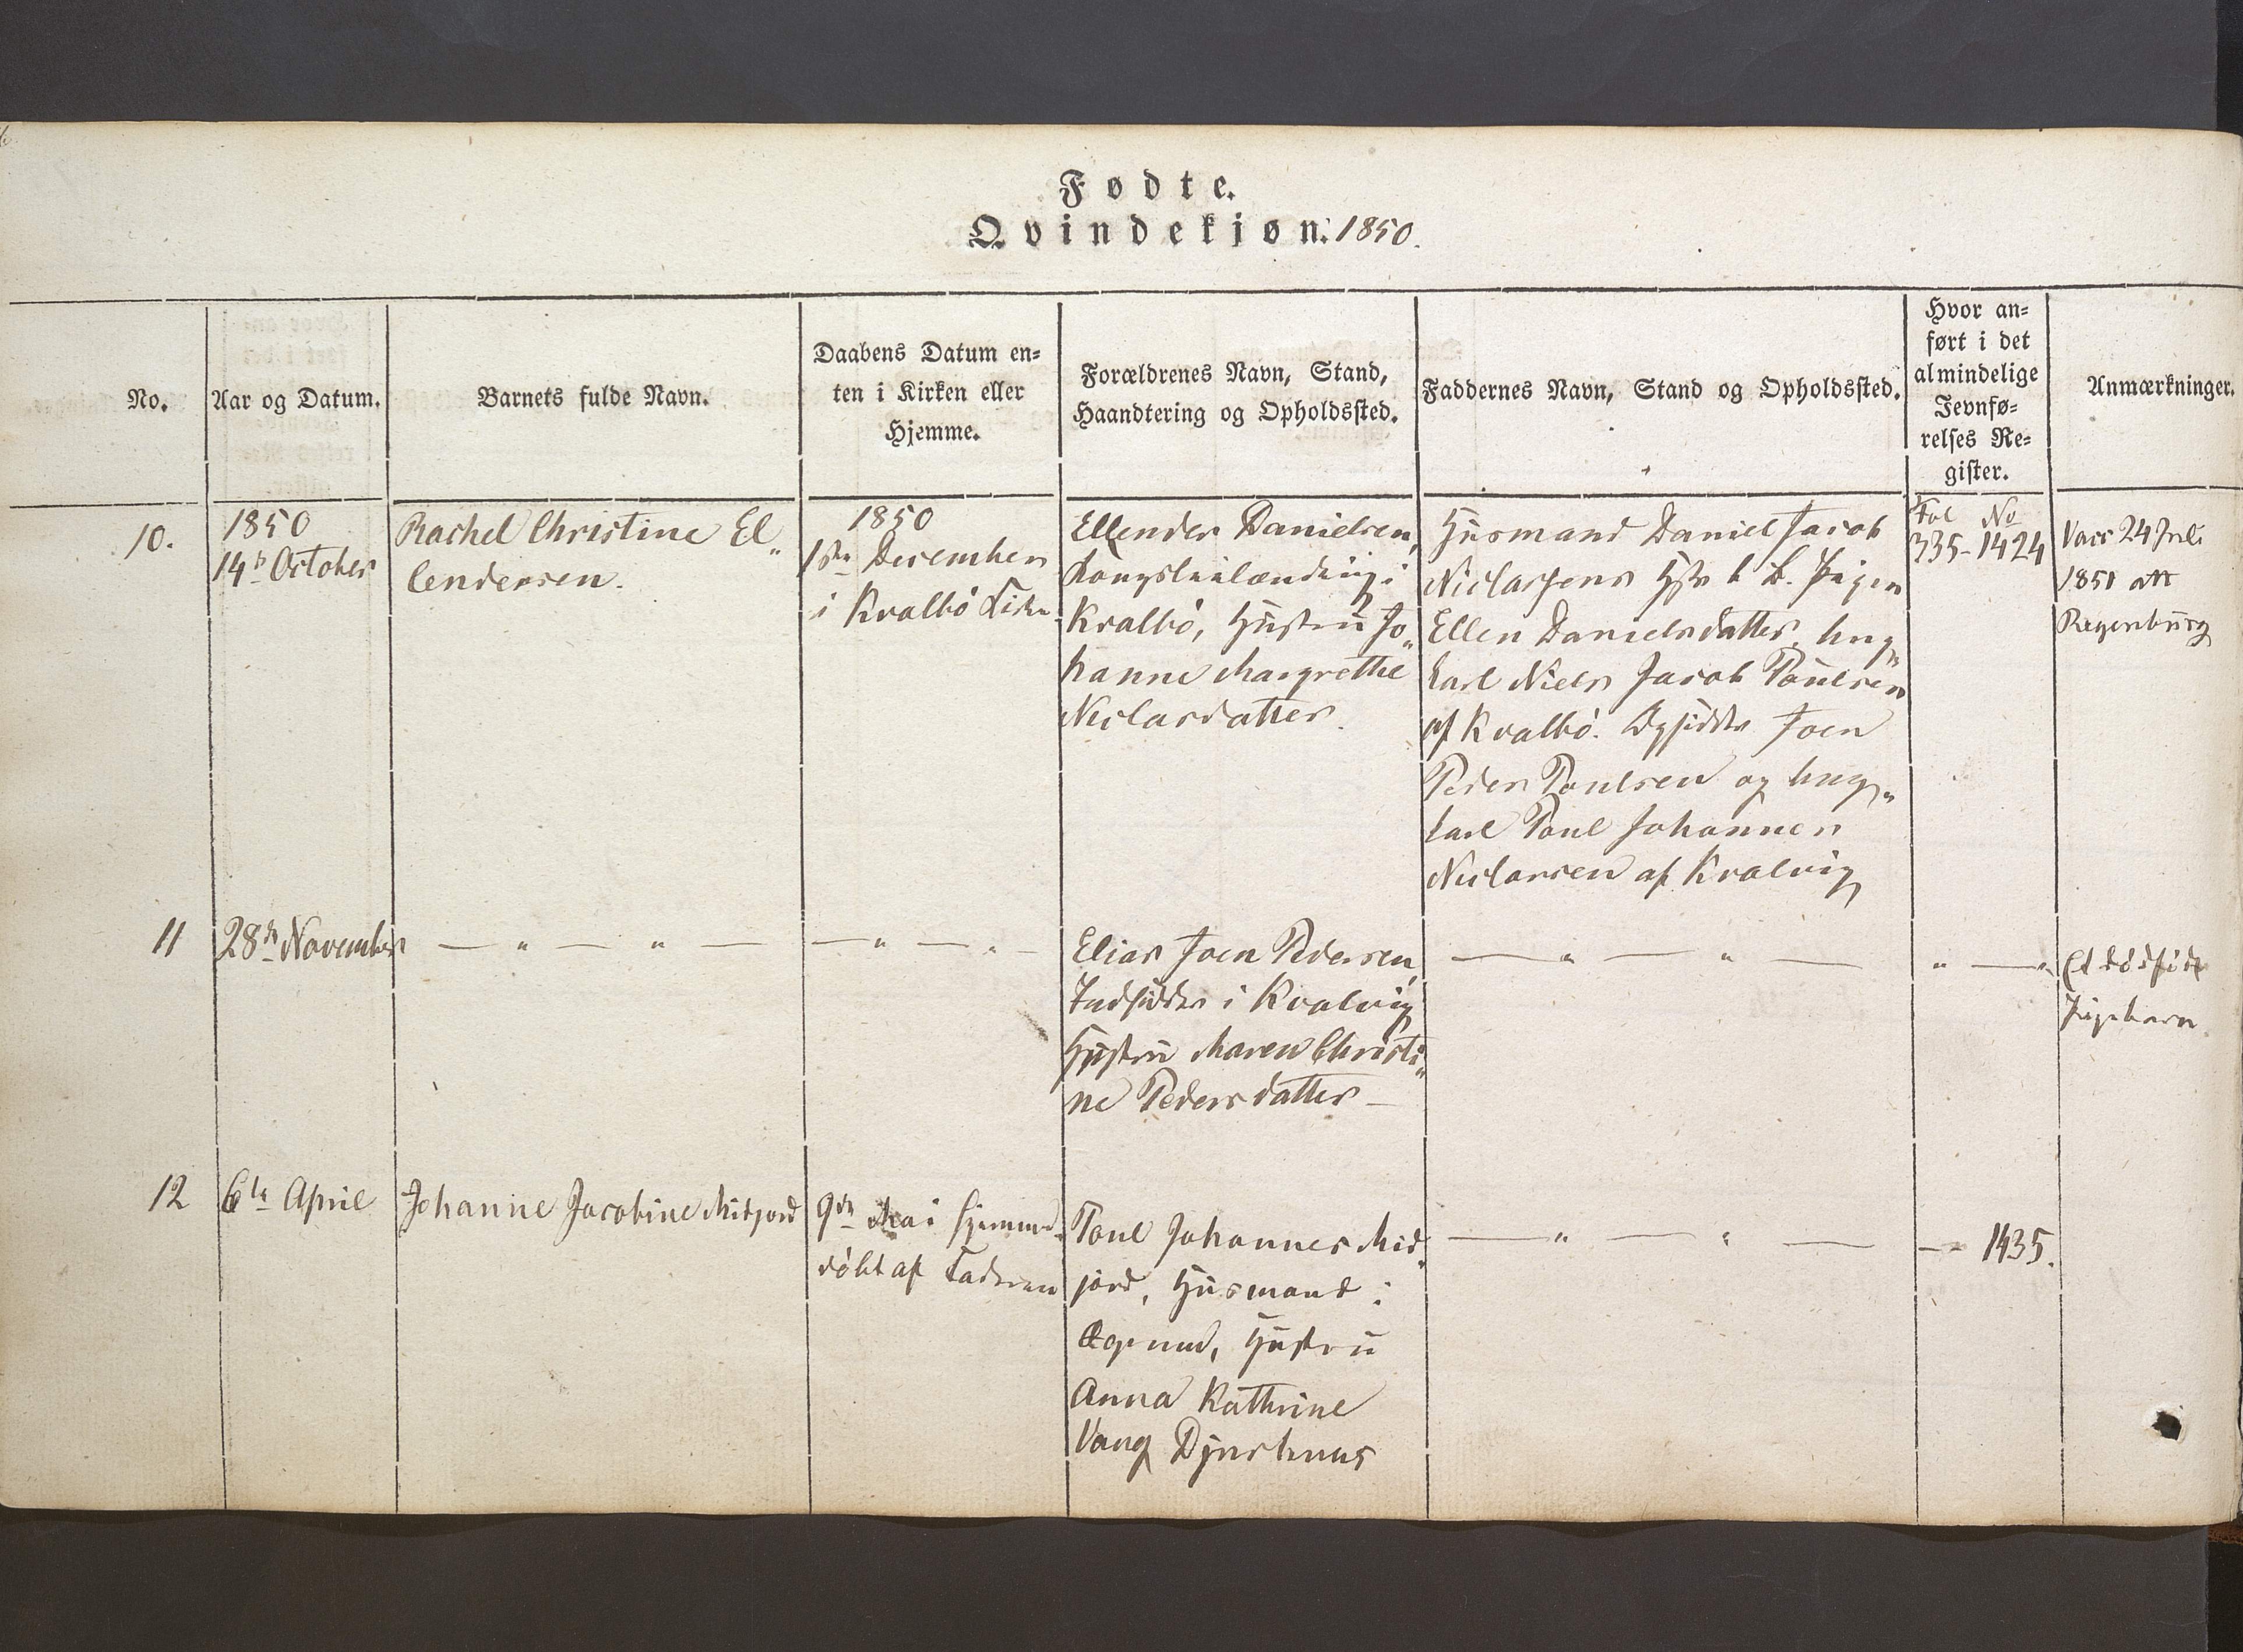 Fødte.
Qvindekjøn. 1850.
No.
Aar og Datum.
Barnets fulde Navn.
Daabens Datum en-
ten i Kirken eller
Hjemme.
Forældrenes Navn, Stand,
Haandtering og Opholdssted.
Faddernes Navn, Stand og Opholdssted.
Hvor an-
ført i det
almindelige
Jevnfø-
relses Re-
gister.
Anmærkninger.
10.
1850
14de October
Rachel Christine El„
lendersen.
1850
1ste December
i Kvalbö Kirke
Ellender Danielsen,
i
Kvalbö, Hustru Jo„
hanne Margrethe
Niclasdatter.
Husmand Daniel Jacob
Niclassens Pigen
Ellen Danielsdatter, Ung„
karl Niels Jacob Poulsen
af Kvalbö. Joen
Peder Poulsen og Ung„
karl Poul Johannes
Niclassen af Kvalvig
Fol No
335 - 1424
Vacc 24 Juli
1851 att
Regenburg
11
28de November
— „ — „ —
— „ — „ —
Elias Joen Pedersen,
Indsidder i Kvalvig
Hustru Maren Christi„
ne Pedersdatter —
— „ — „ —
„ — „
Et dödfödt
Pigebarn.
12
6te April
Johanne Jacobine Midjord
9de Mai hjemme-
döbt af Faderen
Poul Johannes Mid„
jord, Husmand i
Øgrund, Hustru
Anna Kathrine
Vang Djurhuus
— „ — „ —
— „ 1435.